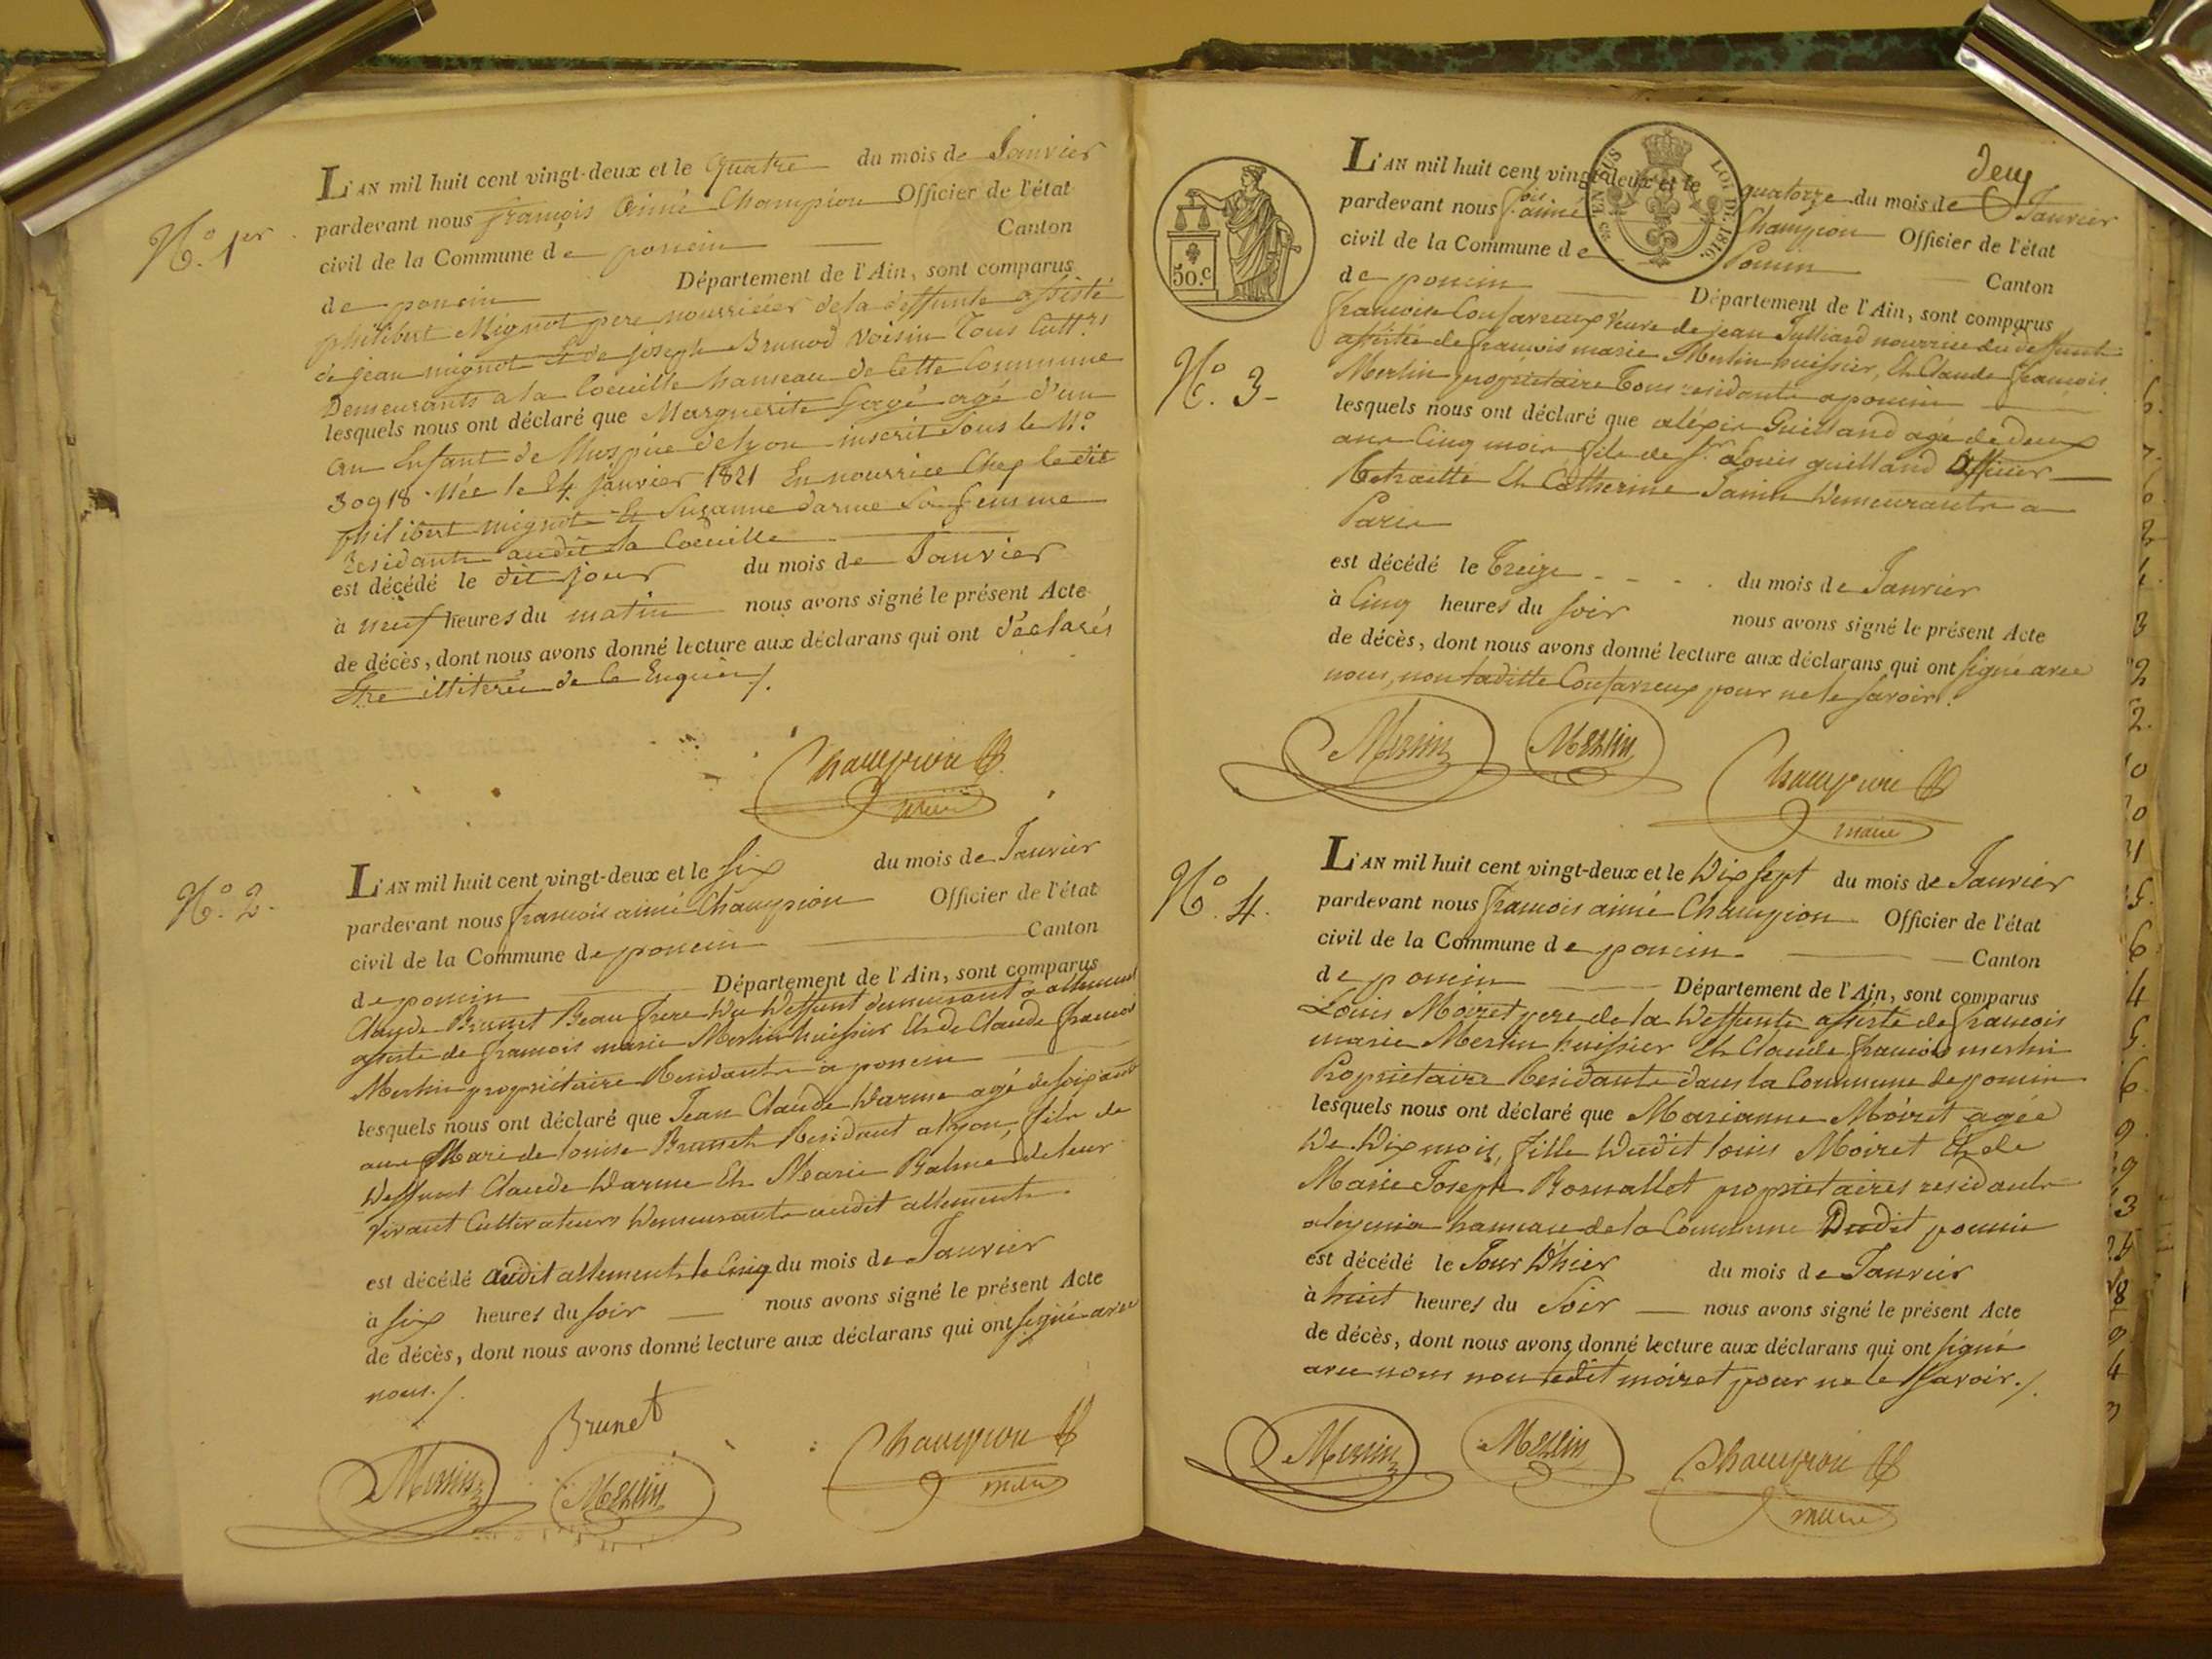 N.º 1er
L'AN mil huit cent vingt-deux et le quatre du mois de Janvier
pardevant nous françois Aimé Champion Officier de l'état
civil de la Commune de poncin Canton
de poncin Département de l'Ain, sont comparus
philibert Mignot pere nourricier de la deffunte assisté
de jean mignot et de joseph Brunod voisin Tous Cultrs
Demeurants a la Coeuille hameau de Cette Commune
lesquels nous ont déclaré que Marguerite agé d'un
an Enfant de l'hospice de lyon inscrit Sous le N.º
30918 Née le 24 janvier 1821 En nourrice Chez le dit
philibert mignot Et Suzanne darme Sa femme
Residants audit la Coeuille
est décédé le dit jour du mois de Janvier
à neuf heures du matin nous avons signé le présent Acte
de décès, dont nous avons donné lecture aux déclarans qui ont déclarés
Etre illiterés de Ce Enquis /.
Champion
maire
N.º 2.
L'AN mil huit cent vingt-deux et le six du mois de Janvier
pardevant nous françois aimé Champion Officier de l'état
civil de la Commune de poncin Canton
de poncin Département de l'Ain, sont comparus
Claude Brunet Beau frere Du Deffunt demeurant a allement
assisté de françois marie Merlin huissier Et de Claude françois
Merlin propriétaire Residants a poncin
lesquels nous ont déclaré que Jean Claude Darme agé de soixante
ans Mari de louise Brunet Residant a lyon, fils de
Deffunt Claude Darme Et Marie Balme de leur
vivant Cultivateurs Demeurants audit allement
est décédé audit allement le Cinq du mois de Janvier
à six heures du soir nous avons signé le présent Acte
de décès, dont nous avons donné lecture aux déclarans qui ont signé avec
nous /.
Brunet
Merlin Merlin Champion
maire
deux
50.c
EN SUS LOI DE 1816.
N.º 3
L'AN mil huit cent vingt-deux et le quatorze du mois de Janvier
pardevant nous fois aimé Champion Officier de l'état
civil de la Commune de Poncin Canton
de poncin Département de l'Ain, sont comparus
françoise veuve de jean Julliard nourrice du deffunt
assistée de françois marie Merlin huissier, Et Claude françois
Merlin proprietaire Tous residants a poncin
lesquels nous ont déclaré que aléxis Guilland agé de deux
ans Cinq mois fils de S.r Louis guilland Officier
Retraitte Et Catherine Janin Demeurants a
Paris
est décédé le Treize du mois de Janvier
à Cinq heures du soir nous avons signé le présent Acte
de décès, dont nous avons donné lecture aux déclarans qui ont signé avec
nous, non laditte pour ne le savoir.
Merlin Merlin Champion
maire
N.º 4.
L'AN mil huit cent vingt-deux et le Dix sept du mois de Janvier
pardevant nous françois aimé Champion Officier de l'état
civil de la Commune de poncin Canton
de poncin Département de l'Ain, sont comparus
Louis Moiret pere de la Deffunte assisté de françois
marie Merlin huissier Et Claude françois merlin
Proprietaire Residants dans la Commune de poncin
lesquels nous ont déclaré que Marianne Moiret agée
De Dix mois, fille Dudit louis Moiret Et de
Marie Joseph proprietaires residants
hameau de la Commune Dudit poncin
est décédé le Jour D'hier du mois de Janvier
à huit heures du Soir nous avons signé le présent Acte
de décès, dont nous avons donné lecture aux déclarans qui ont signé
avec nous non ledit moiret pour ne le Savoir. /.
Merlin Merlin Champion
maire